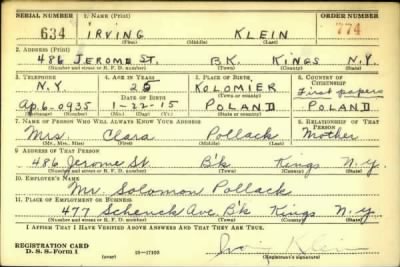 SERIAL NUMBER 1. NAME (Print) ORDER NUMBER
634 IRVING KLEIN 774
(First) (Middle) (Last)
2. ADDRESS (Print)
486 JEROME ST. BK. KINGS N.Y.
(Number and street or R. F. D. number) (Town) (County) (State)
3. TELEPHONE 4. AGE IN YEARS 5. PLACE OF BIRTH 6. COUNTRY OF CITIZENSHIP
N.Y. 25 KOLOMIER First papers
DATE OF BIRTH (Town or county)
Ap. 6-0935 1-22-15 POLAND POLAND
(Exchange) (No.) (Mo.) (Day) (Yr.) (State or country)
7. NAME OF PERSON WHO WILL ALWAYS KNOW YOUR ADDRESS 8. RELATIONSHIP OF THAT PERSON
Mrs. Clara Pollack Mother
(Mr., Mrs., Miss) (First) (Middle) (Last)
9. ADDRESS OF THAT PERSON
486 Jerome St. B'k Kings N.Y.
(Number and street or R. F. D. number) (Town) (County) (State)
10. EMPLOYER'S NAME
Mr. Solomon Pollack
11. PLACE OF EMPLOYMENT OR BUSINESS
477 Schenck Ave. B'k Kings N.Y.
(Number and street or R. F. D. number) (Town) (County) (State)
I AFFIRM THAT I HAVE VERIFIED ABOVE ANSWERS AND THAT THEY ARE TRUE.
REGISTRATION CARD
D. S. S. Form 1 (over) 16—17105 Irving Klein
(Registrant's signature)